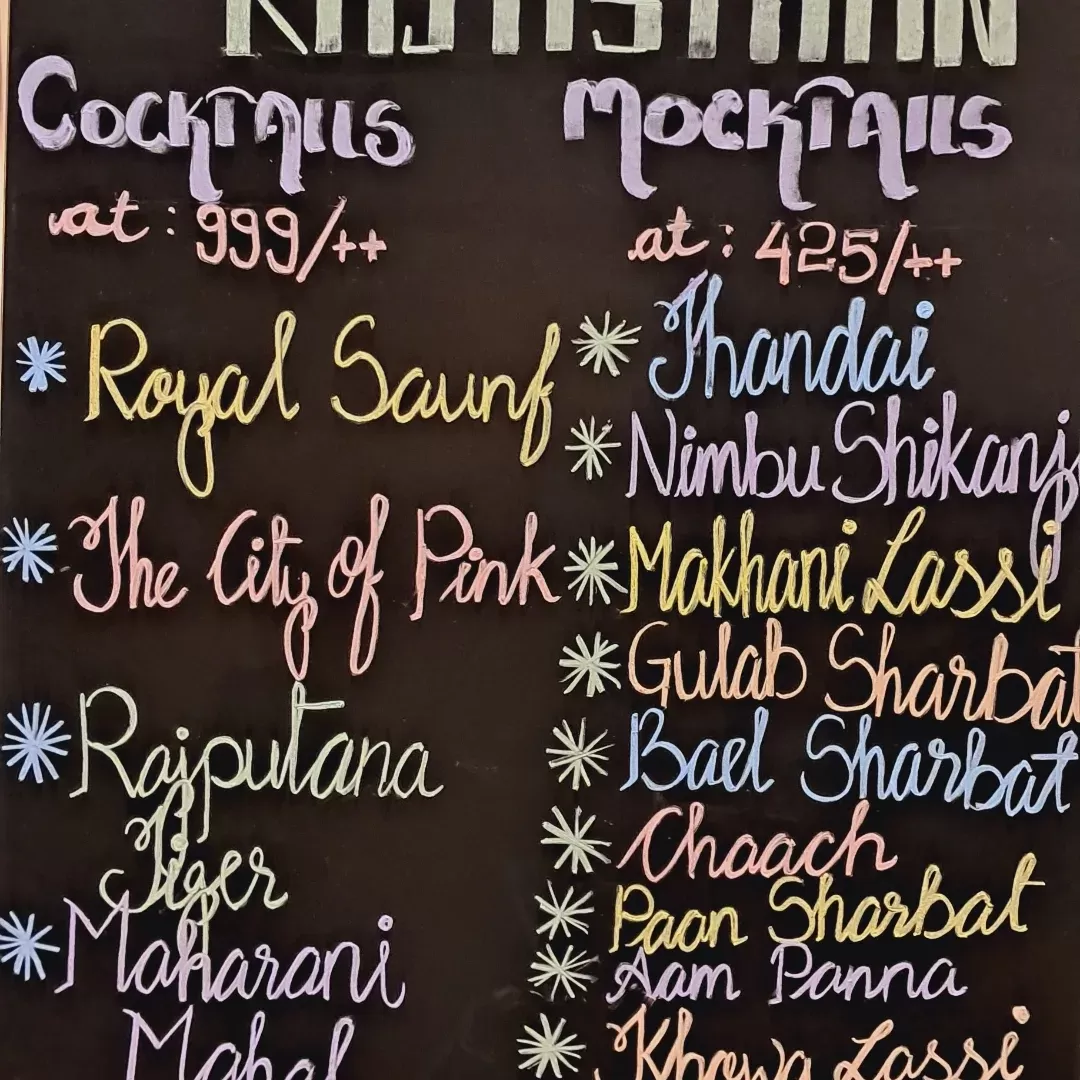 RAJASTHAN
Cocktails
at : 999/++
Royal Saunf
The City of Pink
Rajputana
Tiger
Maharani
Mahal
Mocktails
at : 425/++
Thandai
Nimbu Shikanj
Makhani Lassi
Gulab Sharbat
Bael Sharbat
Chaach
Paan Sharbat
Aam Panna
Khowa Lassi